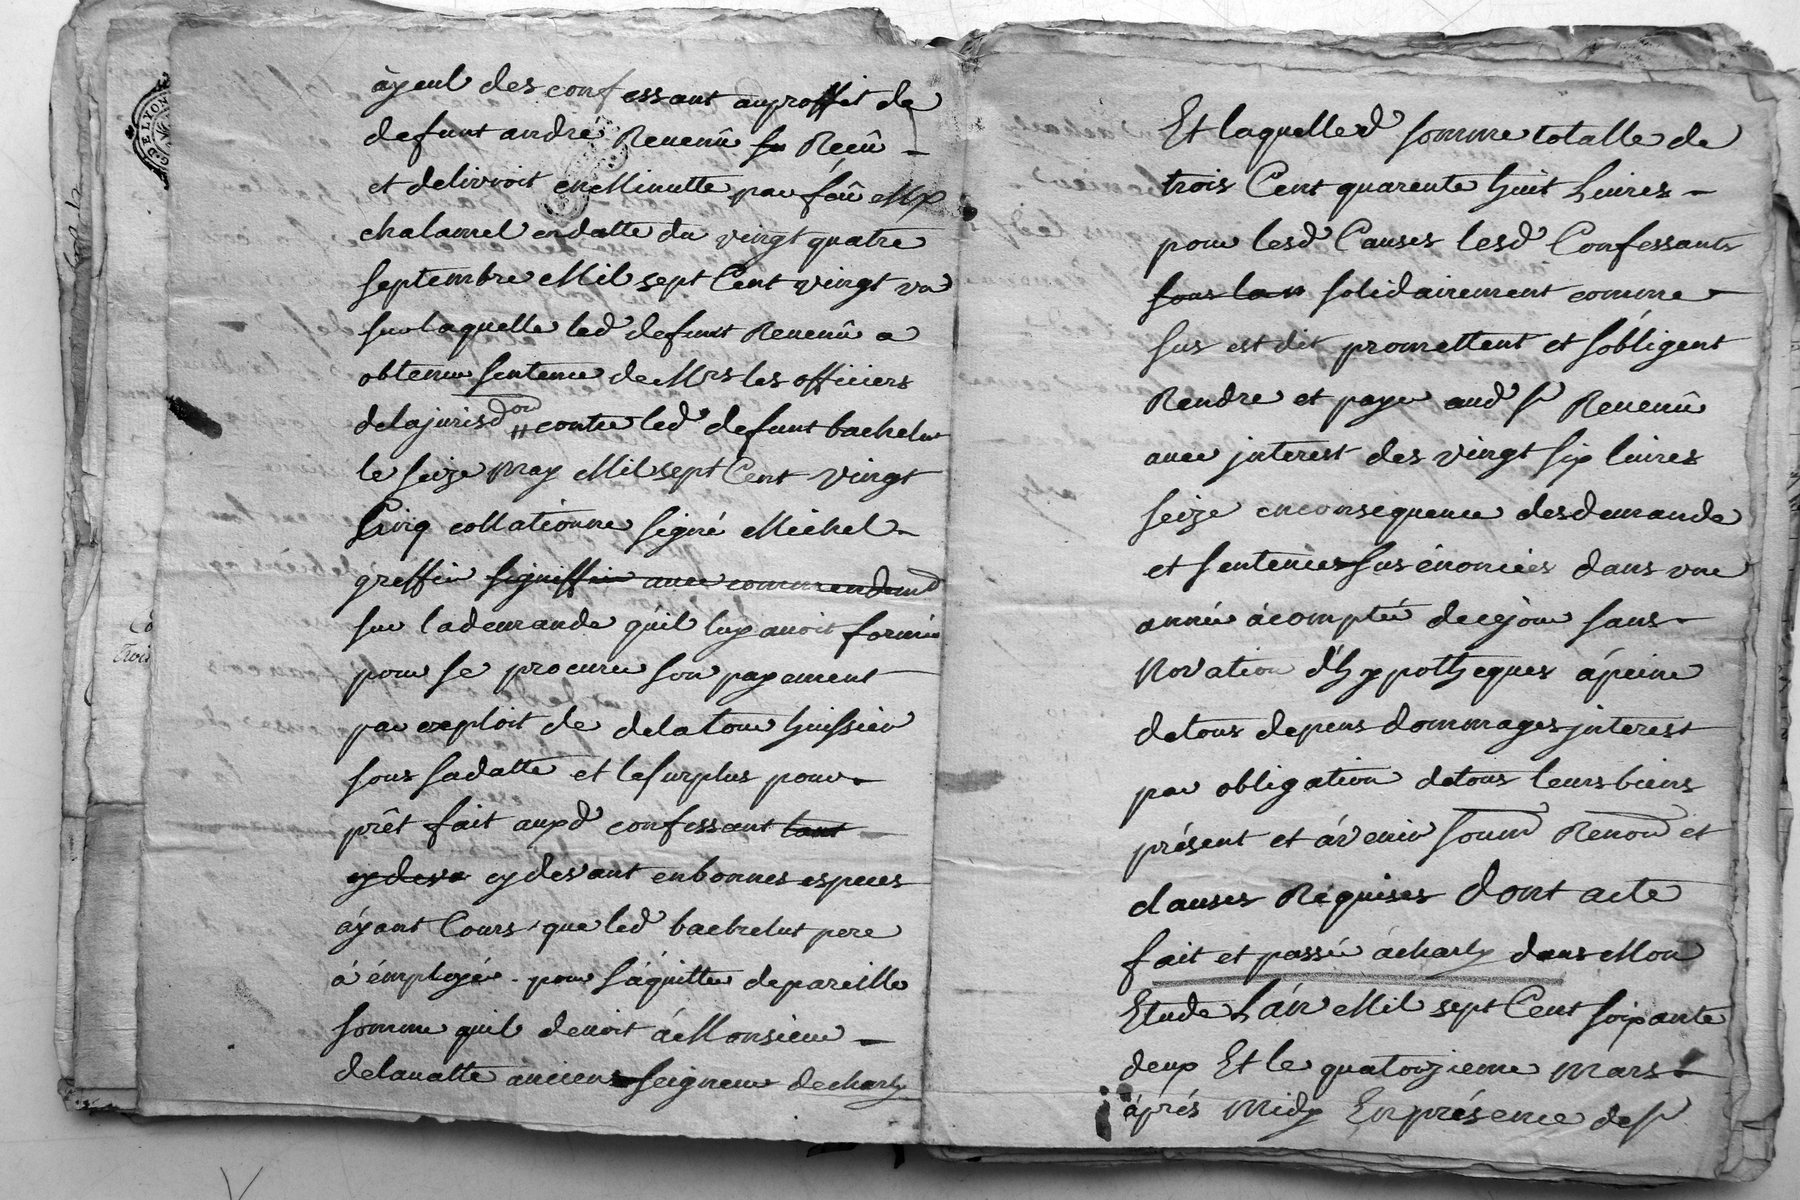 DE LYON
àyeul des confessant auproffit de
defunt andré Revenû Reçû
et delivroit en Minutte par feû Mr
chalamel en datte du vingt quatre
septembre Mil sept Cent vingt un
sur laquelle led defunt Revenû a
obtenu sentence de Mrs les officiers
de la jurisdon contre led defunt bachelut
le seize may Mil sept Cent vingt
Cinq collationne signé Michel
greffier signiffié avec commendemt
sur la demande qu'il luy avoit formée
pour se procurer son payement
par exploit de delatour huissier
sous sa datte et le surplus pour
prêt fait auxd confessant tant
cy deva cy devant en bonnes especes
àyant Cours que led bachelut pere
à émployée pour s'áquitter de pareille
somme quil devoit à Monsieur
delavalte ancien seigneur de charly
Et laquelled somme totalle de
trois Cent quarente huit Livres
pour lesd Causes lesd Confessants
sous la solidairement comme
sus est dit promettent et s'óbligent
Rendre et payer aud Sr Revenû
avec interest des vingt six livres
seize en consequence des demande
et sentences sus énoncées dans une
année à compter de ce jour sans
Novation d'hyppotheques à peine
de tous depens dommages interest
par obligation de tous leurs biens
présent et àvenir soumd Renond et
clauses Requises dont acte
fait et passé à charly dans Mon
Etude L'án Mil sept Cent soixante
deux Et le quatorzieme Mars
àprés Midy En présence de Sr